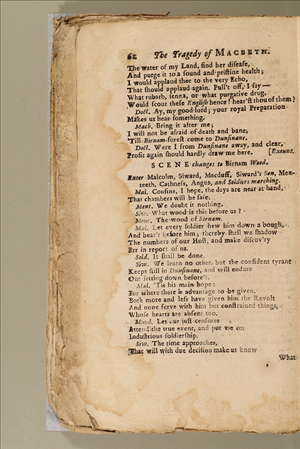 62 The Tragedy of MACBETH.
The water of my Land, find her disease,
And purge it to a sound and pristine health;
I would applaud thee to the very Echo,
That should applaud again. Pull't off, I say—
What rubarb, senna, or what purgative drug,
Would scour these English hence? hear'st thou of them?
Doct. Ay, my good lord; your royal Preparation
Makes us hear something.
Macb. Bring it after me;
I will not be afraid of death and bane,
'Till Birnam-forest come to Dunsinane.
Doct. Were I from Dunsinane away, and clear,
Profit again should hardly draw me here. [Exeunt.
SCENE changes to Birnam Wood.
Enter Malcolm, Siward, Macduff, Siward's Son, Men-
teeth, Cathness, Angus, and Soldiers marching.
Mal. Cousins, I hope, the days are near at hand,
That chambers will be safe.
Ment. We doubt it nothing.
Siw. What wood is this before us?
Ment. The wood of Birnam.
Mal. Let every soldier hew him down a bough,
And bear't before him; thereby shall we shadow
The numbers of our Host, and make discov'ry
Err in report of us.
Sold. It shall be done.
Siw. We learn no other, but the confident tyrant
Keeps still in Dunsinane, and will endure
Our setting down before't.
Mal. 'Tis his main hope:
For where there is advantage to be given,
Both more and less have given him the Revolt
And none serve with him but constrained things,
Whose hearts are absent too.
Macd. Let our just censures
Attend the true event, and put we on
Industrious soldiership.
Siw. The time approaches,
That will with due decision make us know
What